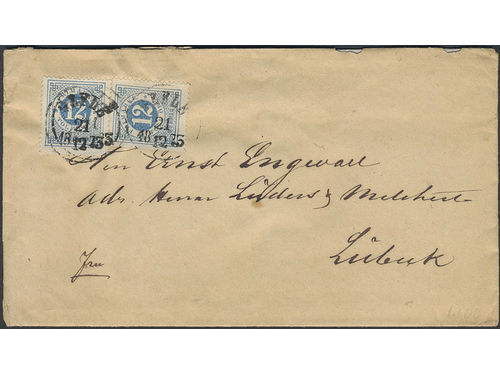 12 12
21 21
18 12 73 18 12 73
Herr Ernst Engwall
adr. Herrar Lüders & Melchert
Lübeck